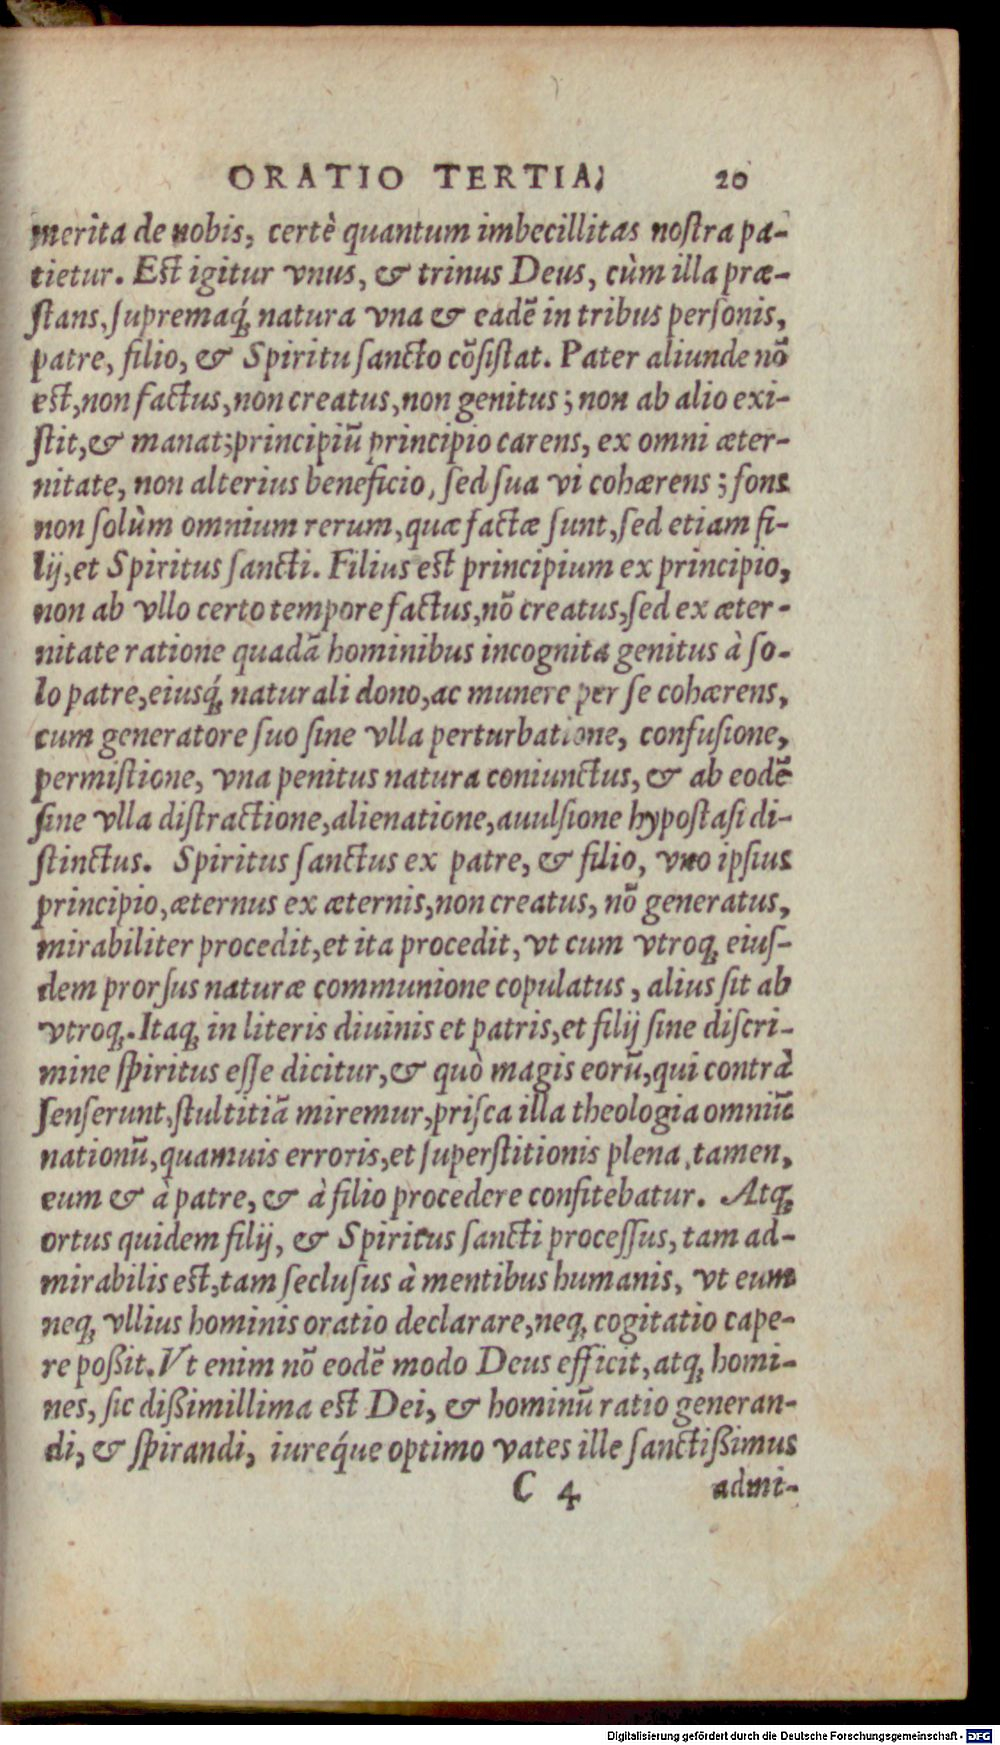 ORATIO TERTIA; 20
merita de nobis, certè quantum imbecillitas nostra pa-
tietur. Est igitur vnus, & trinus Deus, cùm illa præ-
stans, supremaq́; natura vna & eadē in tribus personis,
patre, filio, & Spiritu sancto cōsistat. Pater aliunde nō
est, non factus, non creatus, non genitus; non ab alio exi-
stit, & manat; principiū principio carens, ex omni æter-
nitate, non alterius beneficio, sed sua vi cohærens; fons
non solùm omnium rerum, quæ factæ sunt, sed etiam fi-
lij, et Spiritus sancti. Filius est principium ex principio,
non ab vllo certo tempore factus, nō creatus, sed ex æter-
nitate ratione quadā hominibus incognita genitus à so-
lo patre, eiusq́; naturali dono, ac munere per se cohærens,
cum generatore suo sine vlla perturbatione, confusione,
permistione, vna penitus natura coniunctus, & ab eodē
sine vlla distractione, alienatione, auulsione hypostasi di-
stinctus. Spiritus sanctus ex patre, & filio, vno ipsius
principio, æternus ex æternis, non creatus, nō generatus,
mirabiliter procedit, et ita procedit, vt cum vtroq; eius-
dem prorsus naturæ communione copulatus, alius sit ab
vtroq;. Itaq; in literis diuinis et patris, et filij sine discri-
mine spiritus esse dicitur, & quò magis eorū, qui contrà
senserunt, stultitiā miremur, prisca illa theologia omniū
nationū, quamuis erroris, et superstitionis plena, tamen,
eum & à patre, & à filio procedere confitebatur. Atq;
ortus quidem filij, & Spiritus sancti processus, tam ad-
mirabilis est, tam seclusus à mentibus humanis, vt eum
neq; vllius hominis oratio declarare, neq; cogitatio cape-
re poßit. Vt enim nō eodē modo Deus efficit, atq; homi-
nes, sic dißimillima est Dei, & hominū ratio generan-
di, & spirandi, iureq́ue optimo vates ille sanctißimus
C 4 admi-
Digitalisierung gefördert durch die Deutsche Forschungsgemeinschaft - DFG